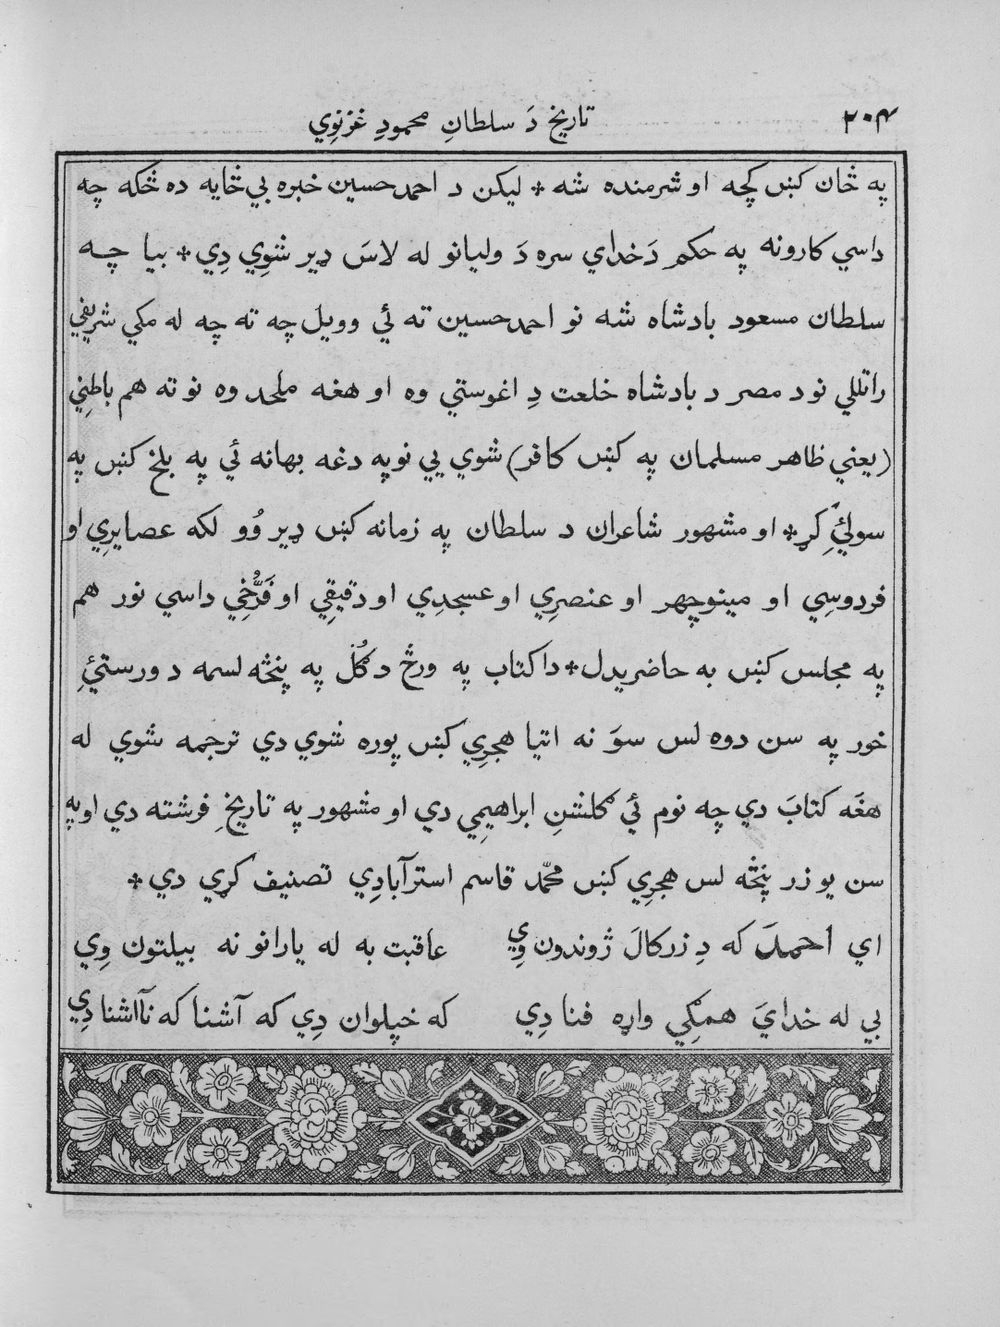 ۲۰۴
تاریخ دَ سلطانِ محمودِ غزنوِي
په ځان کښں کچه او شرمنده شه * لیکن د احمد حسین خبره بي ځایه ده ځکه چه
داسي کارونه په حکم دَ خداي سره دَ ولیانو له لاسَ ډیر شوِي دِي * بیا چه
سلطان مسعود بادشاه شه نو احمد حسین ته ئي وویل چه ته چه له مکي شریفي
راتللي نو د مصر د بادشاه خلعت دِ اغوستي وه او هغه ملحد وه نو ته هم باطنِي
(یعني ظاهر مسلمان په کښں کافر) شوي یي نو په دغه بهانه ئي په بلخ کښں په
سولئِ کړ * او مشهور شاعران د سلطان په زمانه کښں ډیر وُو لکه عصایرِي او
فردوسِي او مینوچهر او عنصرِي او عسجدِي او دقیقِي او فَرُّخِي داسي نور هم
په مجلس کښں به حاضریدل * دا کتاب په ورځ د گُل په پنځه لسمه د ورستئِ
خور په سن دوه لس سوَ نه اتیا هجرِي کښں پوره شوي دي ترجمه شوي له
هغَه کتابَ دي چه نوم ئي گلشنِ ابراهیمِي دي او مشهور په تاریخِ فرشته دي او په
سن یو زر پنځه لس هجرِي کښں محمّد قاسم استرآبادِي تصنیف کړي دي *
اي احمدَ که دِ زر کالَ ژوندون وِي عاقبت به له یارانو نه بیلتون وِي
بي له خدايَ همګِي واړه فنا دِي که خپلوان دِي که آشنا که نآاشنا دِي